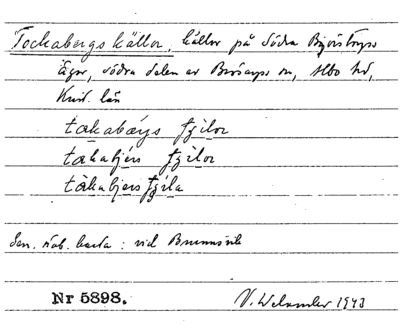 Tockabergs källor, källor på Södra Björstorps
ägor, södra delen av Brösarps sn, Albo hd,
Krist. län
takabærys fzilor
takabjers fzilor
takabjers fzila
Gen. stab. karta : vid Brunnsvik
Nr 5898.
V. Welander 1943